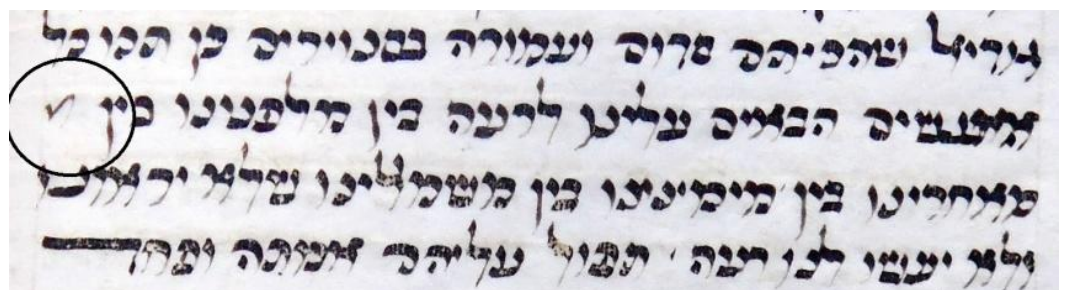 שהכיתם סדום ועמורה בסנוירים כן תכו כל
אנשים הבאים עלינו לרעה בין מלפנינו בין
מאחרינו בין מימינינו בין משמאלינו שלא יראונו
ולא יעשו לנו רעה תפול עליהם אימתה ופחד